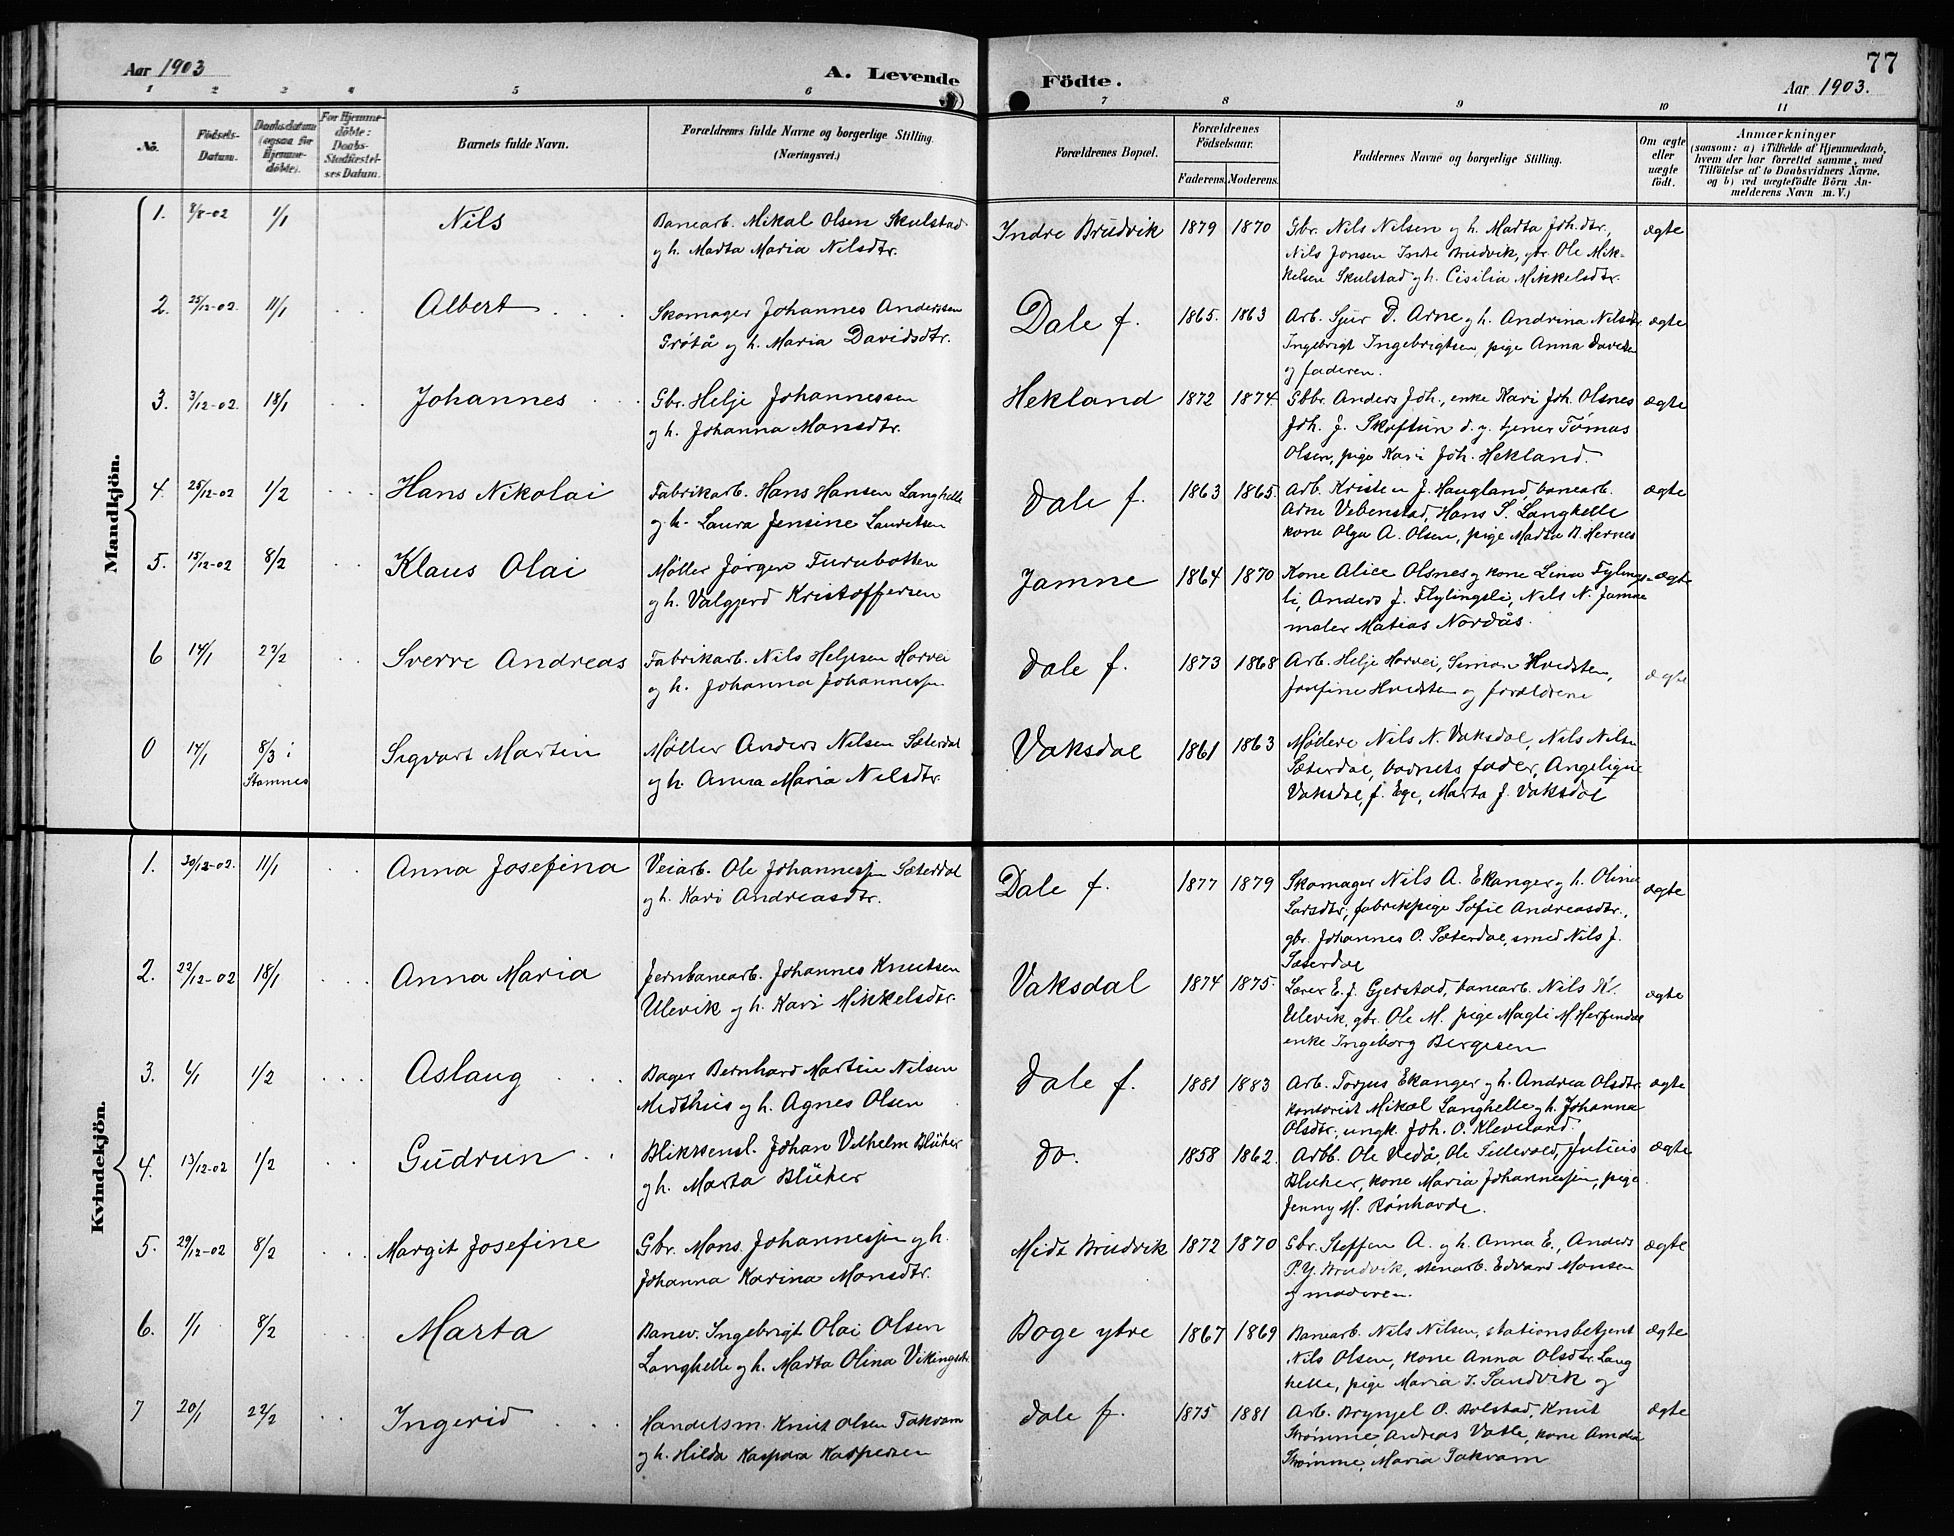 Aar 1903
A. Levende
Födte.
77
Aar 1903.
1 2 3 4 5 6 7 8 9 10 11
No.
Födsels-
Datum.
Daabsdatum
(ogsaa for
Hjemme-
döbte).
For Hjemme-
döbte:
Daabs-
Stadfæstel-
ses Datum.
Barnets fulde Navn.
Forældrenes fulde Navne og borgerlige Stilling.
(Næringsvei.)
Forældrenes Bopæl.
Forældrenes
Födselsaar.
Faderens. Moderens.
Faddernes Navne og borgerlige Stilling.
Om ægte
eller
uægte
födt.
Anmærkninger
(saasom: a) i Tilfælde af Hjemmedaab,
hvem der har forrettet samme, med
Tilföielse af to Daabsvidners Navne,
og b) ved uægtefödte Börn An-
melderens Navn m. V.)
Mandkjön.
1. 8/8-02 1/1 Nils
Banearb. Mikal Olsen Skulstad
og h. Marta Maria Nilsdtr.
Indre Brudvik 1879 1870
Gbr. Nils Nilsen og h. Marta Joh.dtr.,
Nils Jonsen Indre Brudvik, gbr. Ole Mik-
kelsen Skulstad og h. Cisilia Mikkelsdtr.
ægte
2. 25/12-02 11/1 Albert
Skomager Johannes Anderssen
og h. Maria Davidsdtr.
Dale f. 1865. 1863
Arb. Sjur D. Arne og h. Andrina Nilsdtr
Ingebrigt Ingebrigtsen, pige Anna
og faderen.
ægte
3. 3/12-02. 18/1 Johannes
Gbr. Helje Johannessen
og h. Johanna Monsdtr.
Hekland 1872 1874.
Gbbr. Anders Joh., enke Kari Joh. Olsnes
Joh. J. Skoftun d. y. tjener Tømas
Olsen, pige Kari Joh. Hekland.
ægte
4. 25/12-02 1/2 Hans Nikolai
Fabrikarb. Hans Hansen Langhelle
og h. Laura Jensine Lauritsen
Dale f. 1863 1865.
Arb. Kristen J. Haugland, banearb.
Arne Vebenstad, Hans S. Langhelle
kone Olga A. Olsen, pige Marta B. Hernes
ægte
5. 15/12-02 8/2 Klaus Olai
Møller Jørgen Furubotten
og h. Valgjerd Kristoffersen
Jamne 1864 1870
Kone Alice Olsnes og kone Lina Fylings-
li, Anders J. Flylingsli, Nils N. Jamne
maler Matias Nordås.
ægte
6 14/1 22/2 Sverre Andreas
Fabrikarb. Nils Heljesen Horvei
og h. Johanna Johannessen
Dale f. 1873 1868
Arb. Helje Horvei, Simon Hvidsten,
Josefine Hvidsten og forældrene
ægte
0 14/1 8/3 i
Stamnes
Sigvart Martin
Møller Anders Nilsen Sæterdal
og h. Anna Maria Nilsdtr.
Vaksdal 1861 1863
Møllere Nils N. Vaksdal, Nils Nilsen
Sæterdal, barnets fader, Angeligue
Vaksdal, f. Ege, Marta J. Vaksdal
Kvindekjön.
1. 30/12-02. 11/1 Anna Josefina
Veiarb. Ole Johannessen Sæterdal
og h. Kari Andreasdtr.
Dale f. 1877 1879
Skomager Nils A. Ekanger og h. Oline
Larsdtr., fabrikpige Sofie Andreasdtr.,
gbr. Johannes O. Sæterdal, smed Nils J.
Sæterdal
ægte
2. 22/12-02 18/1 Anna Maria
Jernbanearb. Johannes Knutsen
Ulevik og h. Kari Mikkelsdtr.
Vaksdal 1874 1875.
Lærer E. J. Gjerstad, banearb. Nils K.
Ulevik, gbr. Ole M. pige Magli M. Herfindal
enke Ingeborg Bergesen
ægte
3. 6/1 1/2 Aslaug
Bager Bernhard Martin Nilsen
Midthus og h. Agnes Olsen
Dale f. 1881 1883
Arb. Torjus Ekanger og h. Andrea Olsdtr.
kontorist Mikal Langhelle og h. Johanna
Olsdtr., ungk. Joh. O. Kleveland.
ægte
4. 13/12-02 1/2 Gudrun
Blikkensl. Johan Vilhelm Blüher
og h. Marta Blüher
do. 1858 1862.
Arbb. Ole Vedå, Ole Tellevold, Julius
Bluher, kone Maria Johannessen, pige
Jenny M. Rønhovde.
ægte
5. 29/12-02 8/2 Margit Josefine
Gbr. Mons Johannessen og h.
Johanna Karina Monsdtr.
Midt Brudvik 1872 1870
Gbr. Steffen A. og h. Anna E., Anders
P. Y. Brudvik, stenarb. Edvard Monsen
og moderen.
ægte
6. 1/1 8/2 Marta
Banev. Ingebrigt Olai Olsen
Langhelle og h. Marta Olina Vikingsdtr.
Boge ytre 1867 1869
Banearb. Nils Nilsen, stationsbetjent
Nils Olsen, kone Anna Olsdtr. Lang
helle, pige Maria I. Sandvik og
ægte
7 20/1 22/2 Ingerid
Handelsm. Knut Olsen Takvam
og h. Hilda Kaspara Kaspersen
Dale f. 1875 1881
Arb. Brynjel O. Bolstad, Knut
Strømme, Andreas Vatle, kone Amalia
Strømme, Maria Takvam
ægte